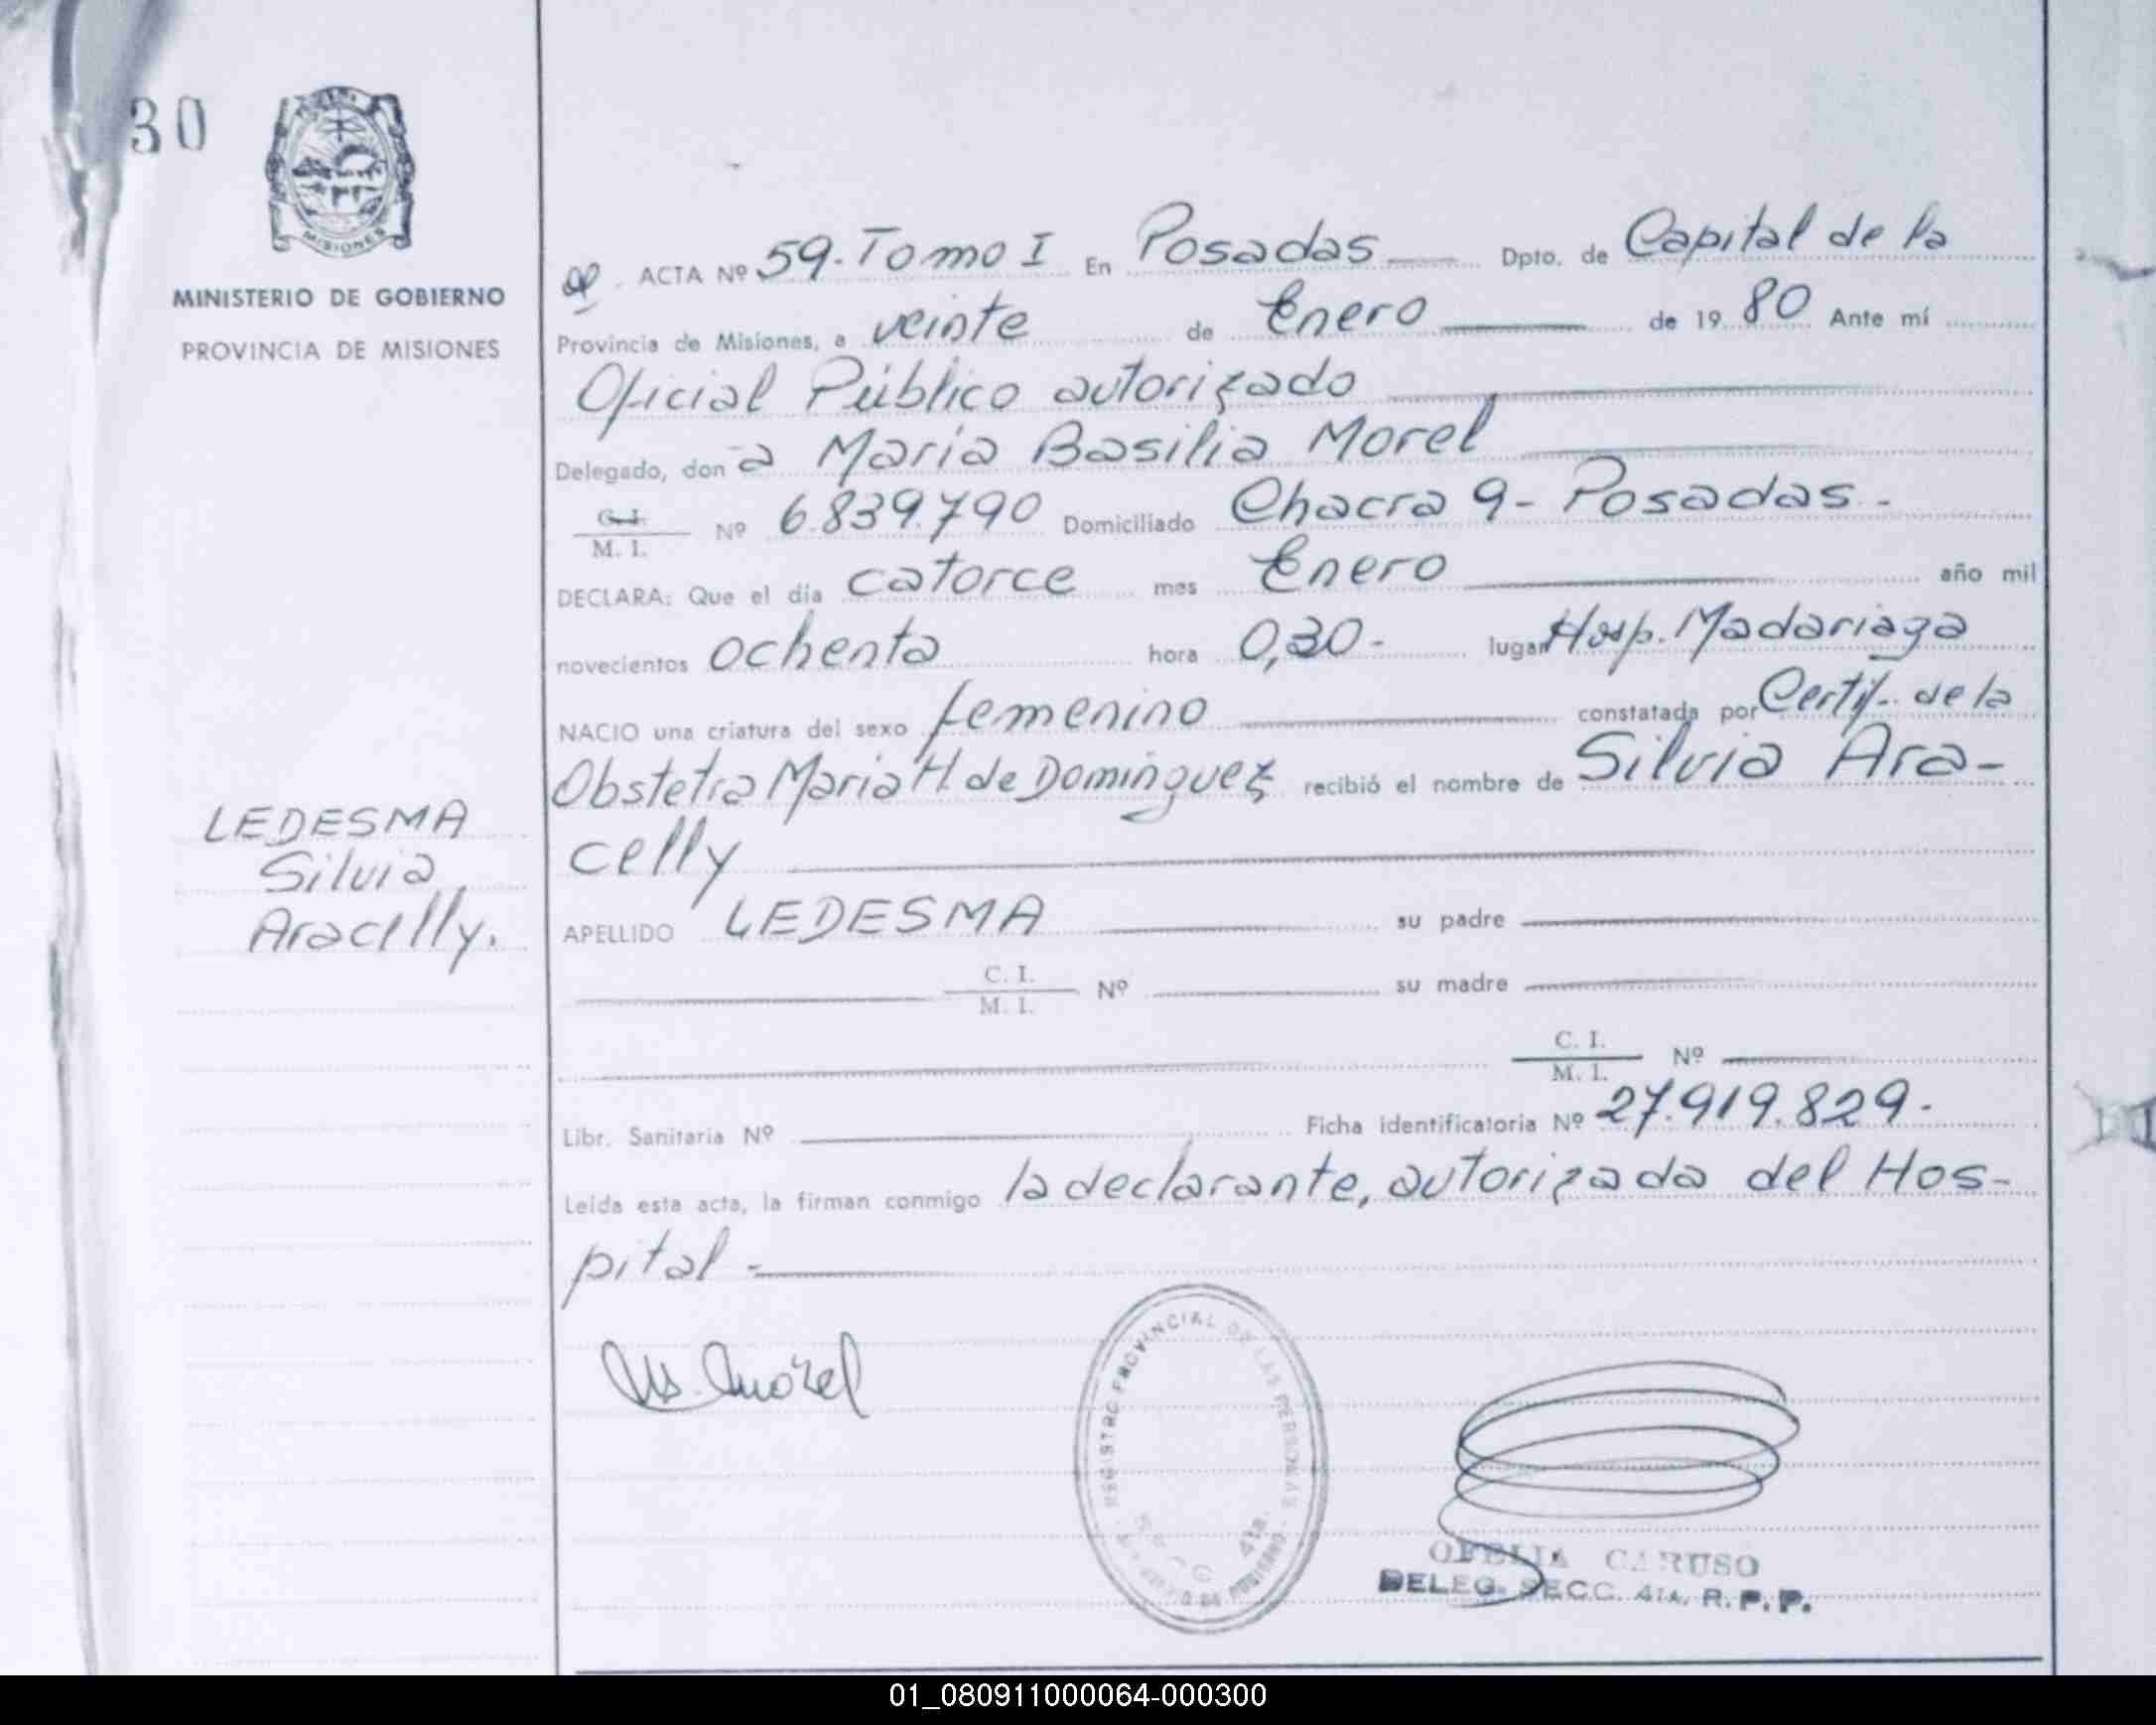 30
MISIONES
MINISTERIO DE GOBIERNO
PROVINCIA DE MISIONES
ACTA Nº 59. Tomo I En Posadas Dpto. de Capital de la
Provincia de Misiones, a veinte de Enero de 1980 Ante mí
Oficial Público autorizado
Delegado, don a Maria Basilia Morel
C. I.
M. I. Nº 6.839.790 Domiciliado Chacra 9 - Posadas -
DECLARA: Que el día catorce mes Enero año mil
novecientos ochenta hora 0,30 - lugar Hosp. Madariaga
NACIO una criatura del sexo femenino constatada por Certif. de la
Obstetra Maria H. de Dominguez recibió el nombre de Silvia Ara-
celly
APELLIDO LEDESMA su padre
C. I.
M. I. Nº su madre
C. I.
M. I. Nº
Libr. Sanitaria Nº Ficha identificatoria Nº 27.919.829.
Leída esta acta, la firman conmigo la declarante, autorizada del Hos-
pital -
LEDESMA
Silvia
Aracelly.
M. Morel
REGISTRO PROVINCIAL DE LAS PERSONAS
SECC. 4ta.
OFELIA CARUSO
DELEG. SECC. 4TA. R. P. P.
01_080911000064-000300